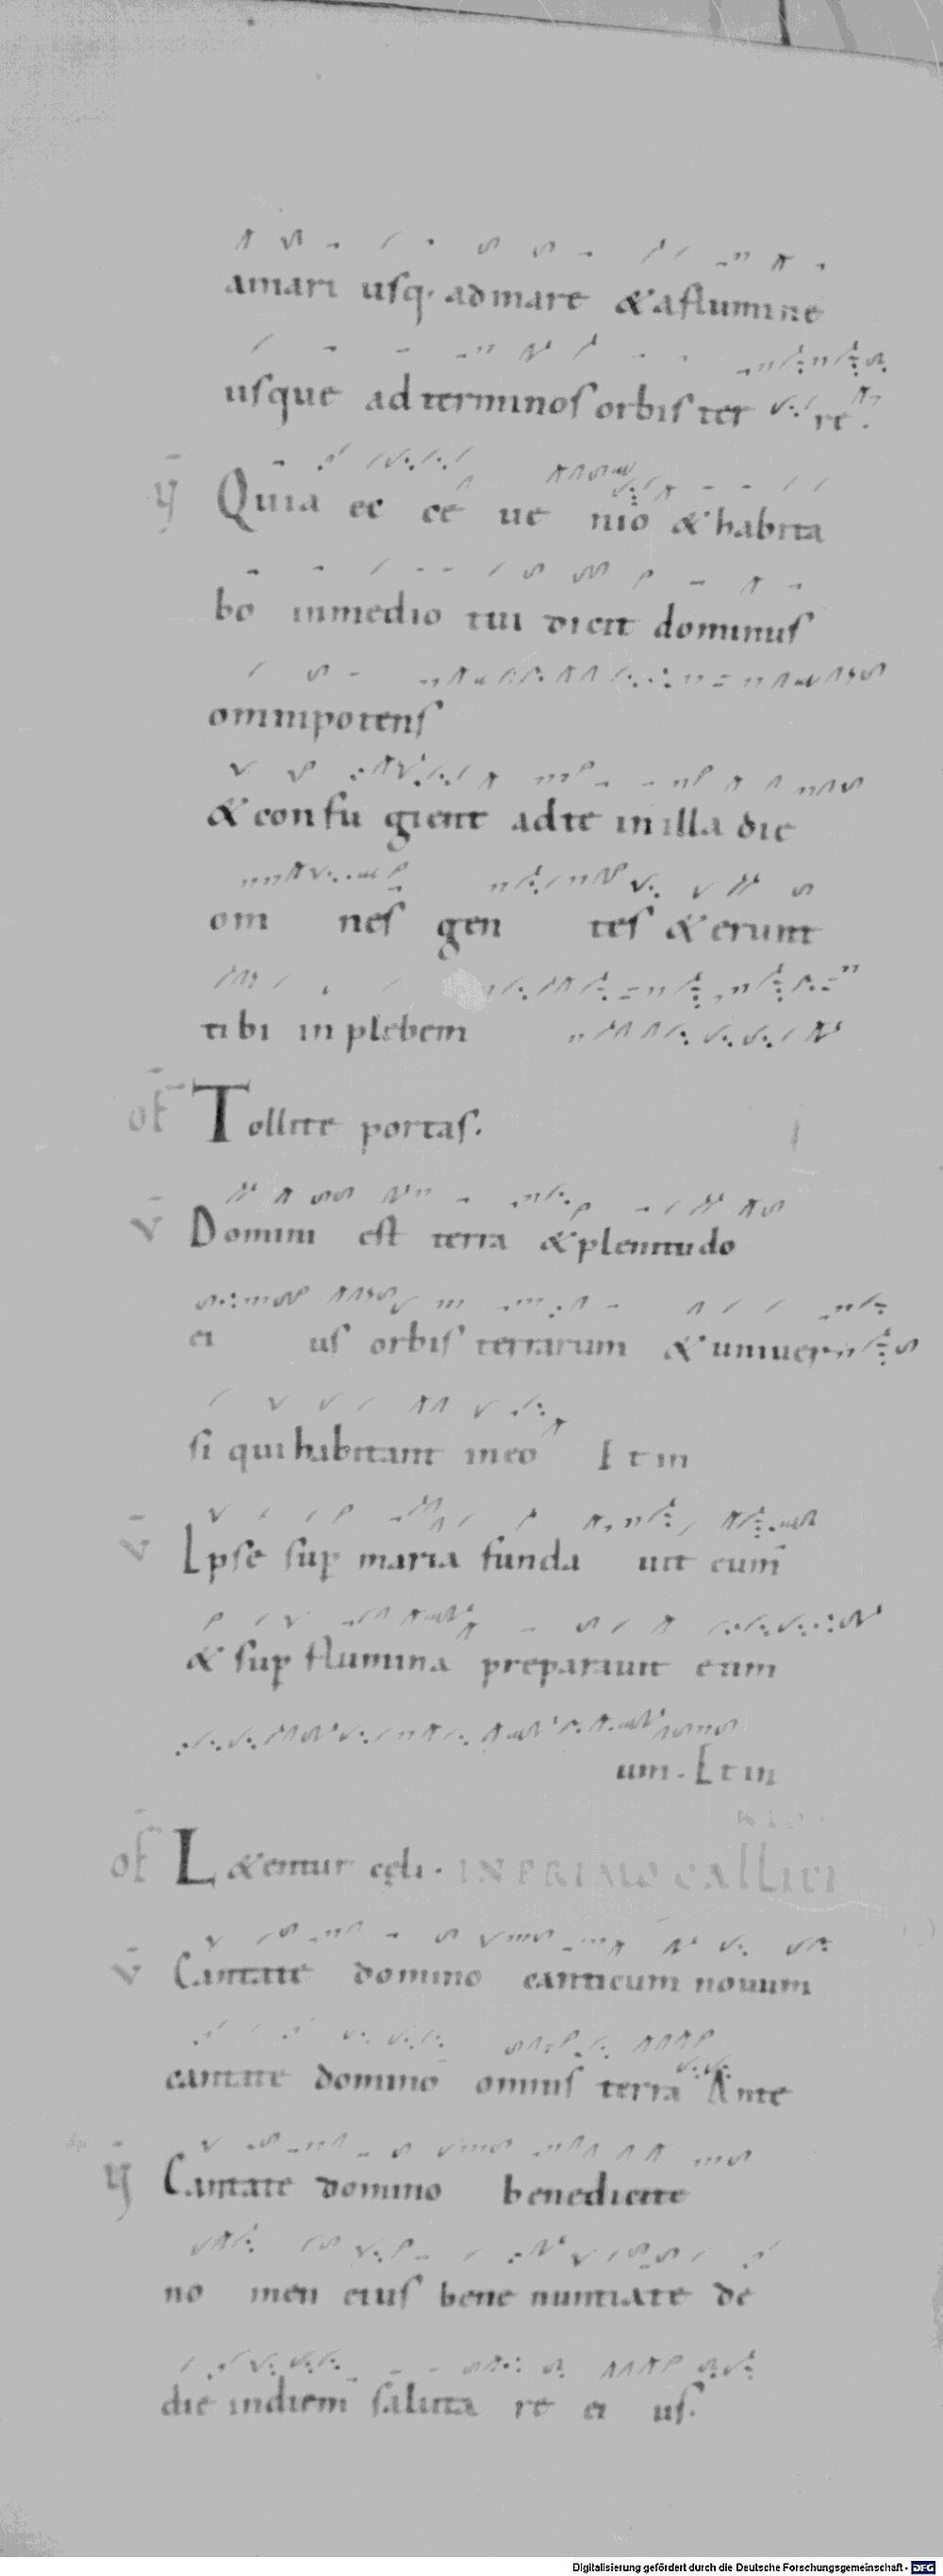 amari usq; ad mare & a flumine
usque ad terminos orbis ter re.
V Quia ec ce ue nio & habita
bo inmedio tui dicit dominus
omnipotens
& confu gient ad te in illa die
om nes gen tes & erunt
tibi in plebem
of Tollite portas.
V Domini est terra & plenitudo
ei us orbis terrarum & univer
si qui habitant in eo Et in
V Ipse sup maria funda uit eum
& sup flumina preparauit eum
um. Et in
of L&entur cęli. IN PRIMO GALLICI
V Cantate domino canticum nouum
cantate domino omnis terra Ante
V Cantate domino benedicite
no men eius bene nuntiate de
die indiem saluta re ei us.
Digitalisierung gefördert durch die Deutsche Forschungsgemeinschaft - DFG